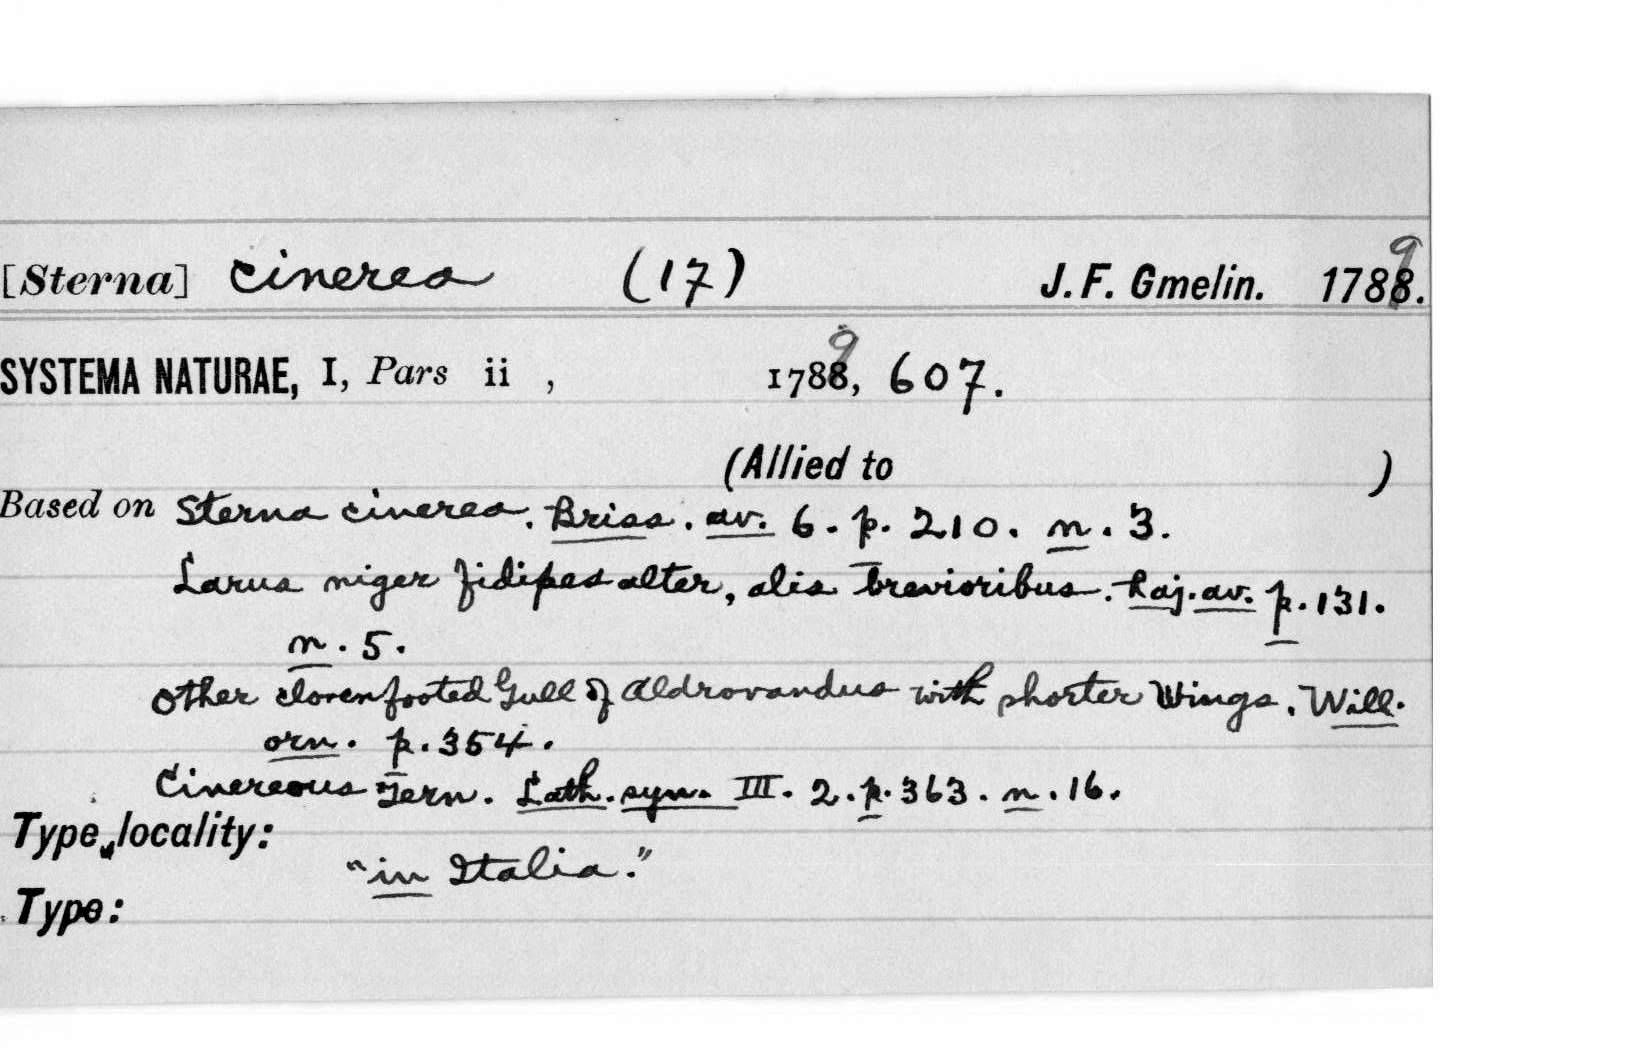 [Sterna] cinerea (17) J. F. Gmelin. 1789.
SYSTEMA NATURAE, I, Pars ii , 1789, 607.
(Allied to )
Based on Sterna cinerea. Briss. av. 6. p. 210. n. 3.
Larus niger fidipes alter, alis brevioribus. Raj. av. p. 131.
n. 5.
Other cloven footed Gull of Aldrovandus with shorter Wings. Will.
orn. p. 354.
Cinereous Tern. Lath. syn. III. 2. p. 363. n. 16.
Type locality:
"in Italia."
Type: